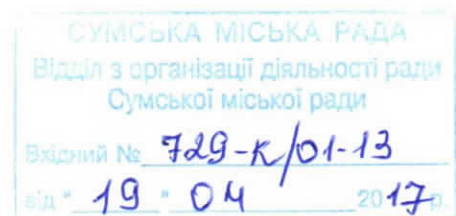 СУМСЬКА МІСЬКА РАДА
Відділ з організації діяльності ради
Сумської міської ради
Вхідний № 729-К/01-13
від " 19 " 04 2017р.